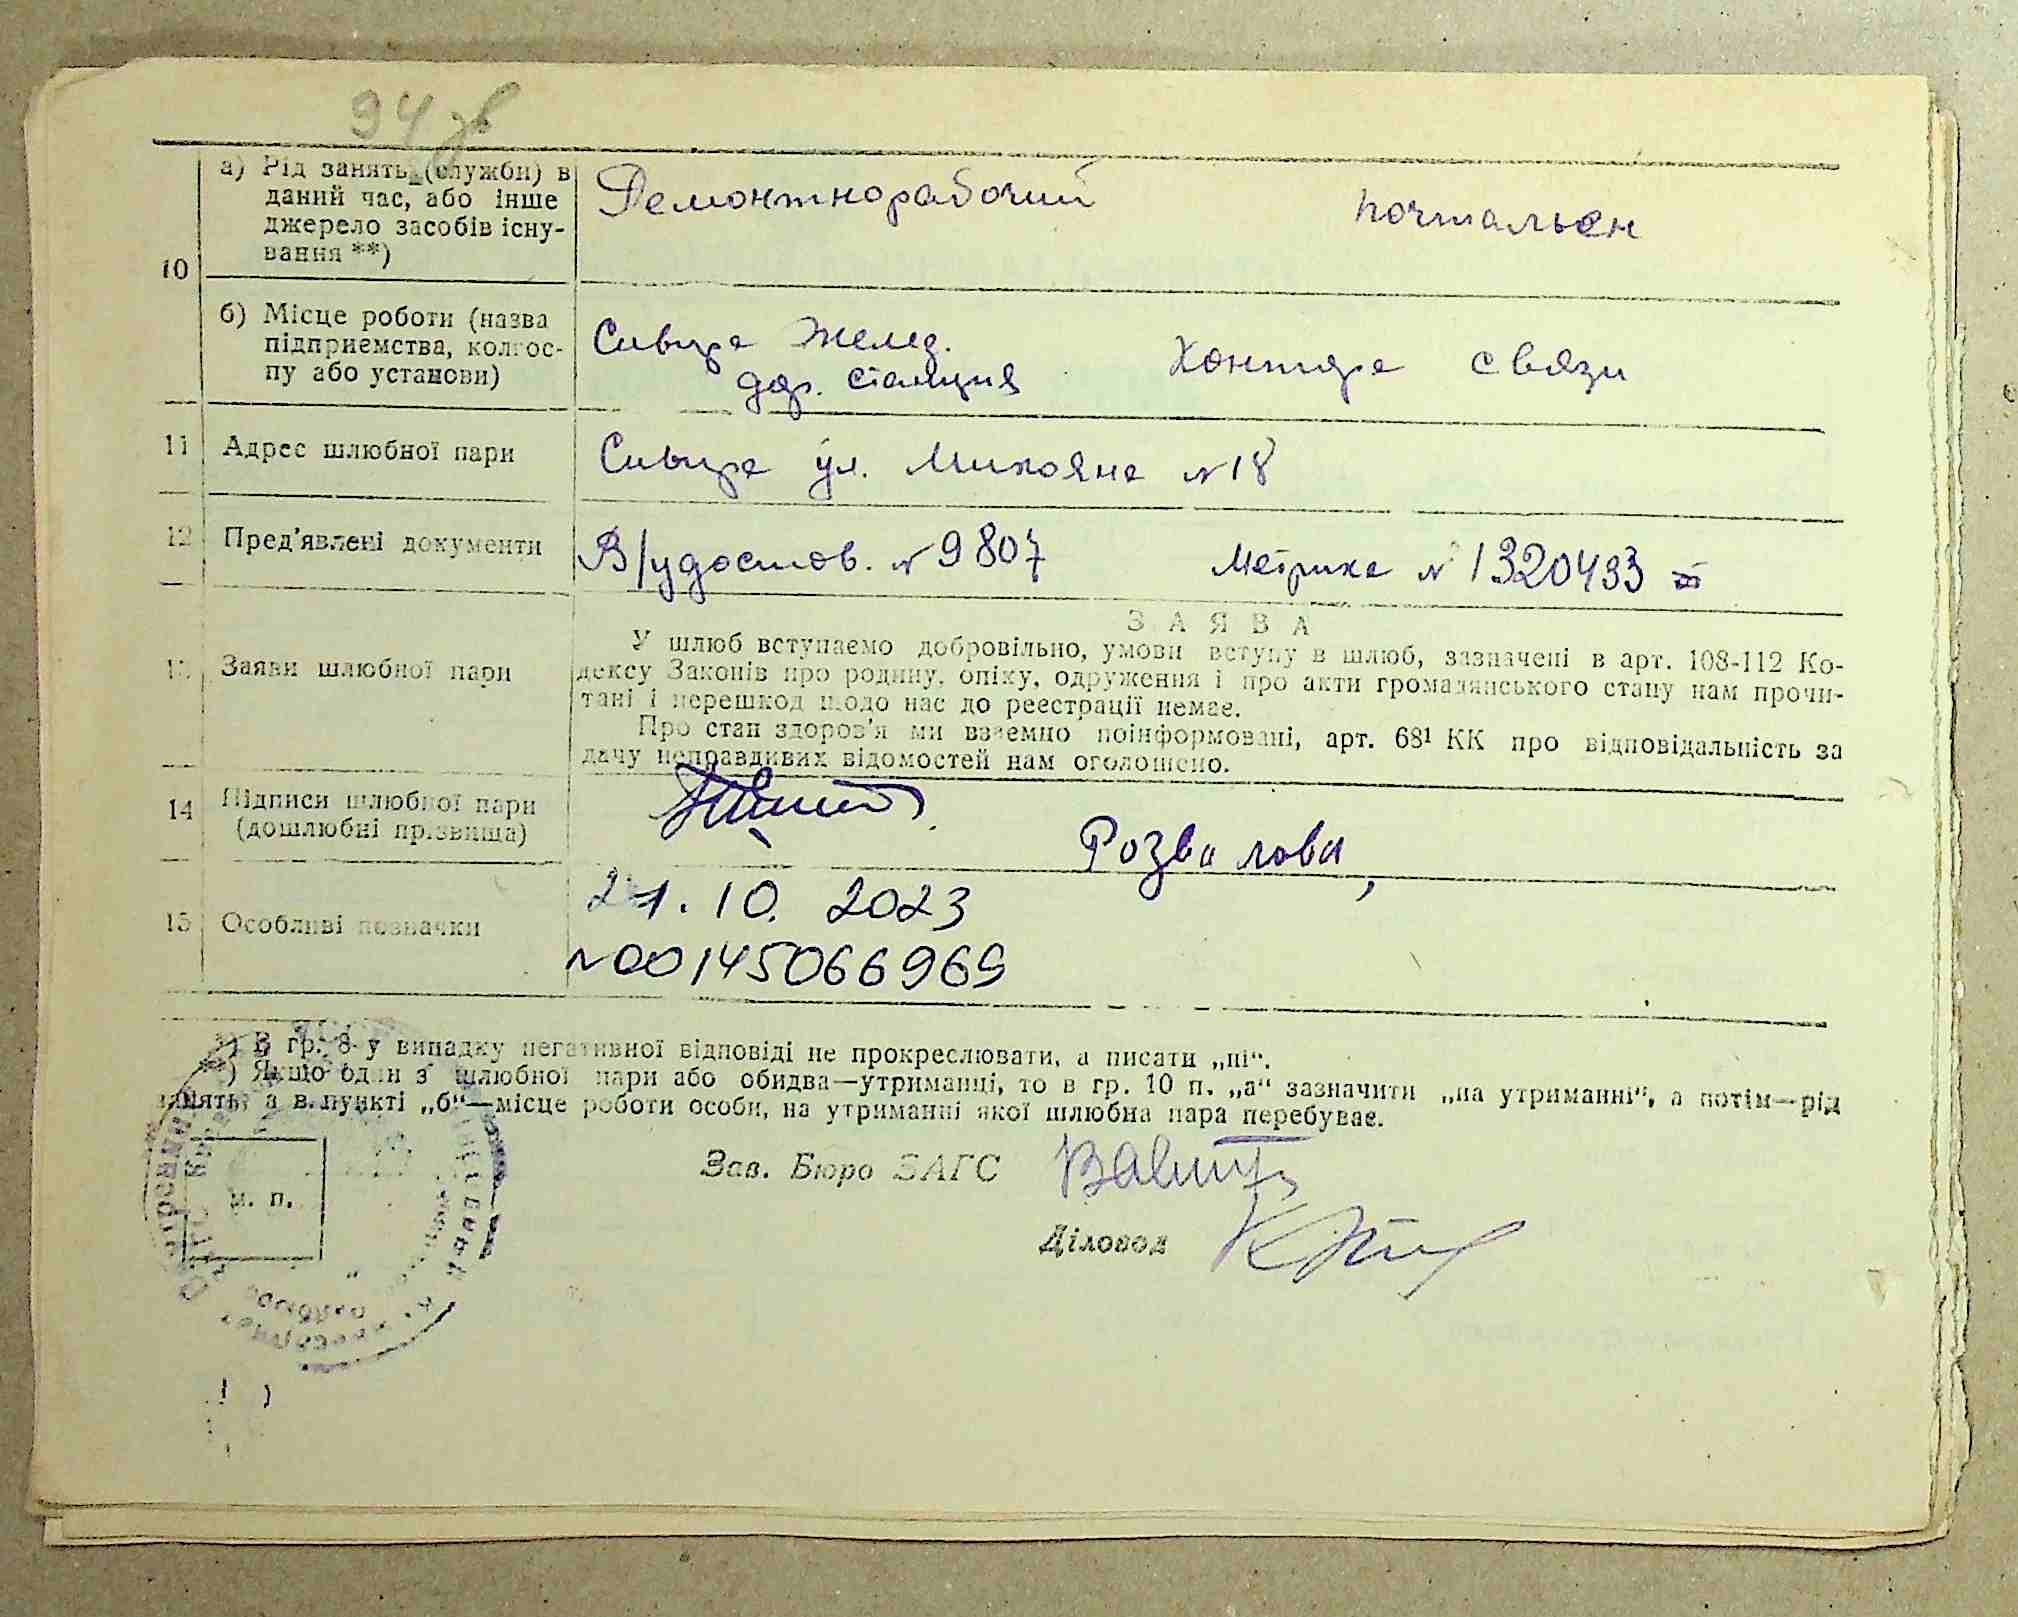 94 зв
10
а) Рід занять (служби) в даний час, або інше джерело засобів існування **)
Ремонтнорабочий
почтальон
б) Місце роботи (назва підприємства, колгоспу або установи)
Сквира желед. дор. станция
Контора связи
11 Адрес шлюбної пари
Сквира ул. Микояна №18
12 Пред'явлені документи
В/удостов. №9807
Метрика № 1320433
13 Заяви шлюбної пари
ЗАЯВА
У шлюб вступаємо добровільно, умови вступу в шлюб, зазначені в арт. 108-112 Ко-
дексу Законів про родину, опіку, одруження і про акти громадянського стану нам прочи-
тані і перешкод щодо нас до реєстрації немає.
Про стан здоров'я ми взаємно поінформовані, арт. 68¹ КК про відповідальність за
дачу неправдивих відомостей нам оголошено.
14 Підписи шлюбної пари
(дошлюбні прізвища)
Розвалова
15 Особливі позначки
21.10.2023
№00145066969
*) В гр. 8 у випадку негативної відповіді не прокреслювати, а писати „ні“.
**) Якщо один з шлюбної пари або обидва—утриманці, то в гр. 10 п. „а“ зазначити „на утриманні“, а потім—рід
занять, а в пункті „б“—місце роботи особи, на утриманні якої шлюбна пара перебуває.
Зав. Бюро ЗАГС
Діловод
м. п.